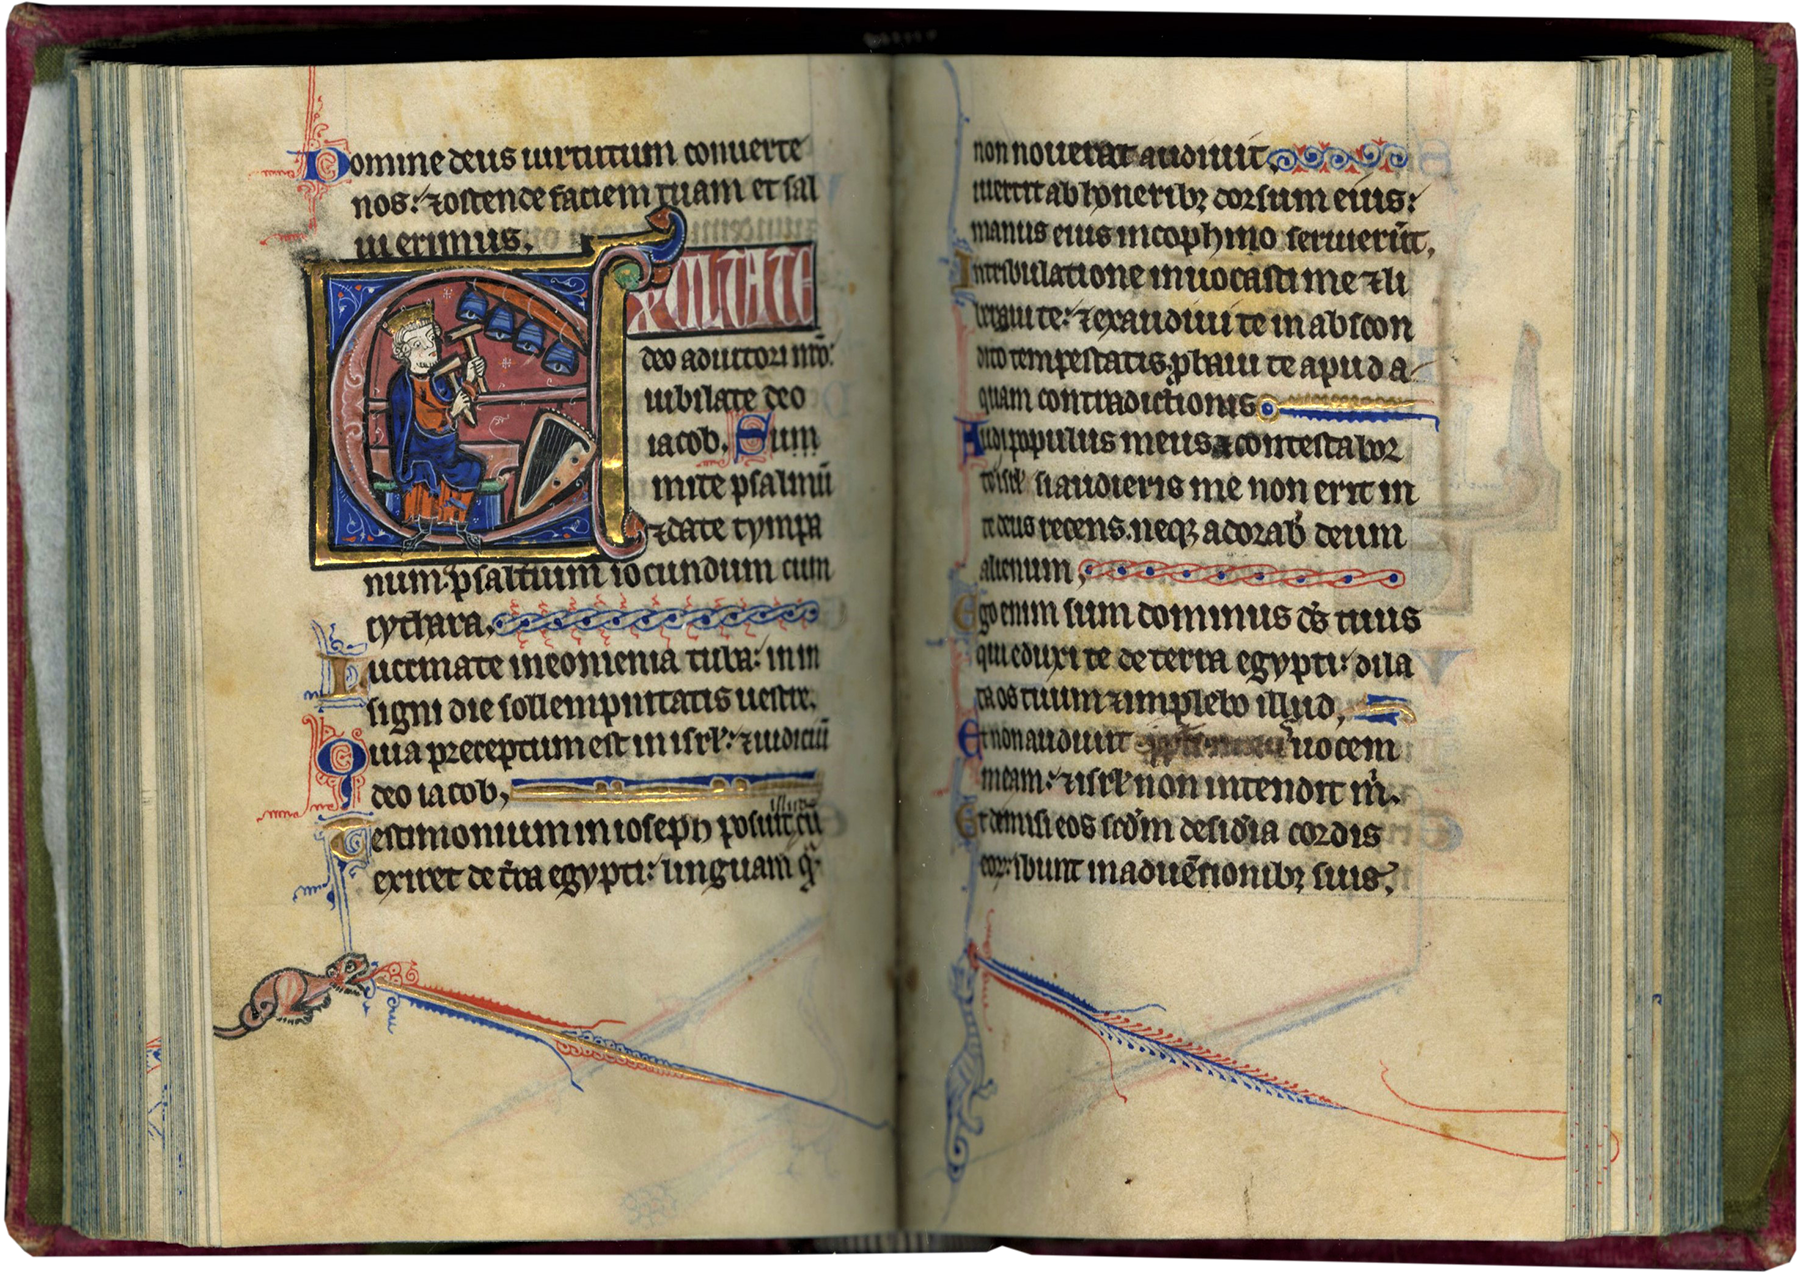 Domine deus uirtutum conuerte
nos: ⁊ ostende faciem tuam et sal
ui erimus.
EXULTATE
deo adiutori nr̄o:
iubilate deo
iacob. Sum
mite psalmū
⁊ date tympa
num: psalt̄ium iocundum cum
cythara,
Buccinate in eomenia tuba: in in
signi die sollempnitatis uestre.
Quia preceptum est in isrl̄: ⁊ iudiciū
deo iacob,
Testimonium in ioseph posuit illud cū
exiret de t̄ra egypti: linguam q̄
non nouerat audiuit.
iuertit ab honeribꝫ dorsum eius:
manus eius in cophino seruierūt,
In tribulatione inuocasti me ⁊ li
beraui te: ⁊ exaudiui te in abscon
dito tempestatis, ꝓbaui te apud a
quam contradictionis
Audi populus meus ⁊ contestabor
te isrl̄ si audieris me non erit in
te deus recens. neqꝫ adorab̄ deum
alienum,
Ego enim sum dominus dꝰs tuus
qui eduxi te de terra egypti: dila
ta os tuum ⁊ implebo illud,
Et non audiuit uocem
meam: ⁊ isrl̄ non intendit m̄i.
Et dimisi eos scd̄m desid̄ia cordis
eoꝝ: ibunt in aduētionibꝫ suis,